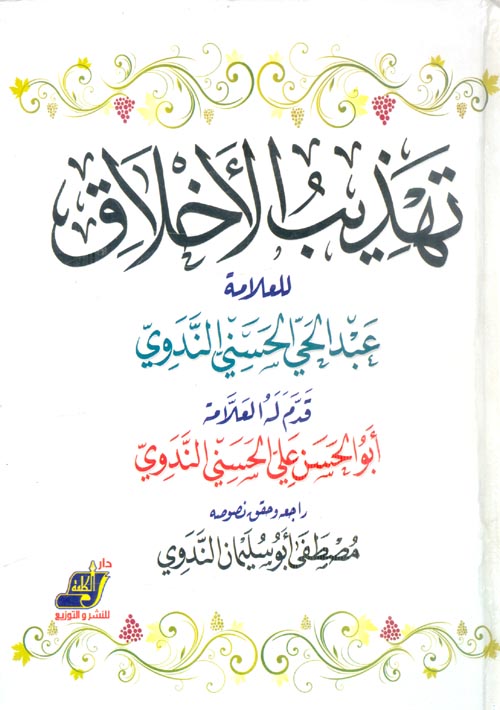 تهذيب الأخلاق
للعلامة
عَبْد الحَيّ الحَسَنيّ النَّدَوِيّ
قَدَّمَ لَهُ العَلَّامَة
أبُو الحَسَن عَلي الحَسَني النَّدَوِيّ
راجعه وحقق نصوصه
مُصْطَفَى أبُو سُلَيْمَان النَّدَوِي
دار
الكلمة
للنشر والتوزيع